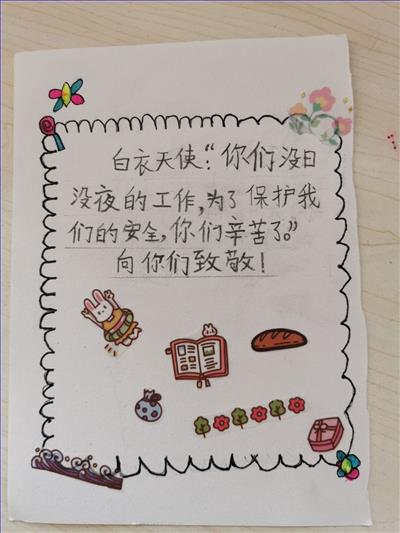 白衣天使:“你们没日
没夜的工作,为了保护我
们的安全,你们辛苦了。”
向你们致敬!